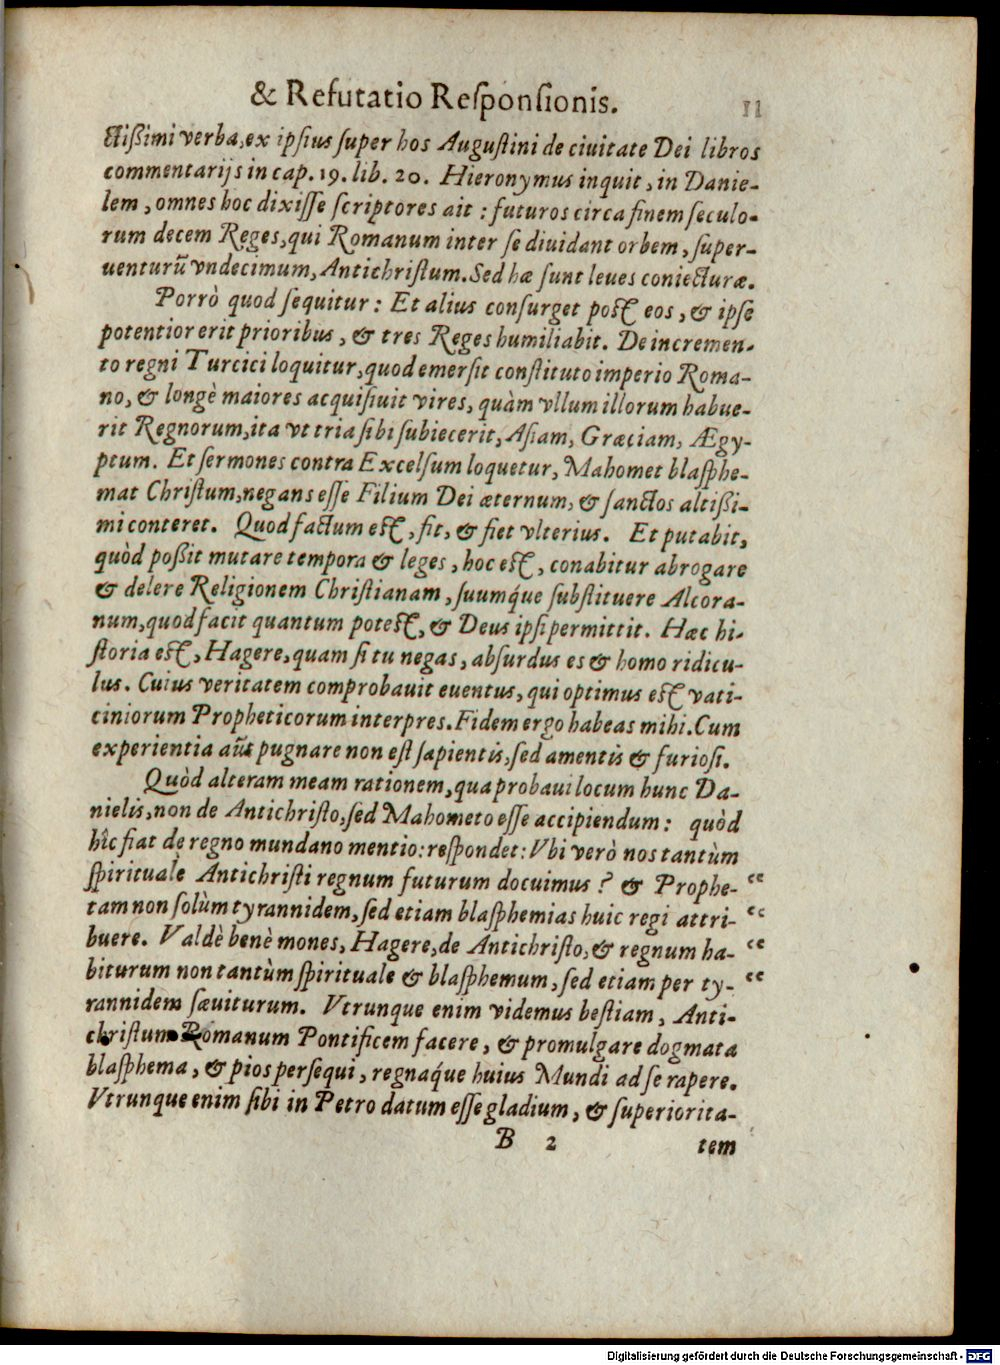 & Refutatio Reſponſionis. 11
ctißimi verba, ex ipſius ſuper hos Auguſtini de ciuitate Dei libros
commentarijs in cap. 19. lib. 20. Hieronymus inquit, in Danie-
lem, omnes hoc dixiſſe ſcriptores ait : futuros circa finem ſeculo-
rum decem Reges, qui Romanum inter ſe diuidant orbem, ſuper-
uenturũ vndecimum, Antichriſtum. Sed hæ ſunt leues coniecturæ.
Porrò quod ſequitur : Et alius conſurget poſt eos, & ipſe
potentior erit prioribus, & tres Reges humiliabit. De incremen-
to regni Turcici loquitur, quod emerſit conſtituto imperio Roma-
no, & longè maiores acquiſiuit vires, quàm vllum illorum habue-
rit Regnorum, ita vt tria ſibi ſubiecerit, Aſiam, Græciam, Ægy-
ptum. Et ſermones contra Excelſum loquetur, Mahomet blaſphe-
mat Chriſtum, negans eſſe Filium Dei æternum, & ſanctos altißi-
mi conteret. Quod factum eſt, fit, & fiet vlterius. Et putabit,
quòd poßit mutare tempora & leges, hoc eſt, conabitur abrogare
& delere Religionem Chriſtianam, ſuumq́ue ſubſtituere Alcora-
num, quod facit quantum poteſt, & Deus ipſi permittit. Hæc hi-
ſtoria eſt, Hagere, quam ſi tu negas, abſurdus es & homo ridicu-
lus. Cuius veritatem comprobauit euentus, qui optimus eſt vati-
ciniorum Propheticorum interpres. Fidem ergo habeas mihi. Cum
experientia aũt pugnare non eſt ſapientis, ſed amentis & furioſi.
Quòd alteram meam rationem, qua probaui locum hunc Da-
nielis, non de Antichriſto, ſed Mahometo eſſe accipiendum : quòd
hîc fiat de regno mundano mentio : reſpondet : Vbi verò nos tantùm
ſpirituale Antichriſti regnum futurum docuimus ? & Prophe- “
tam non ſolùm tyrannidem, ſed etiam blaſphemias huic regi attri- “
buere. Valdè benè mones, Hagere, de Antichriſto, & regnum ha- “
biturum non tantùm ſpirituale & blaſphemum, ſed etiam per ty- “
rannidem ſæuiturum. Vtrunque enim videmus beſtiam, Anti-
chriſtum Romanum Pontificem facere, & promulgare dogmata
blaſphema, & pios perſequi, regnaq́ue huius Mundi ad ſe rapere.
Vtrunque enim ſibi in Petro datum eſſe gladium, & ſuperiorita-
B 2 tem
Digitalisierung gefördert durch die Deutsche Forschungsgemeinschaft - DFG